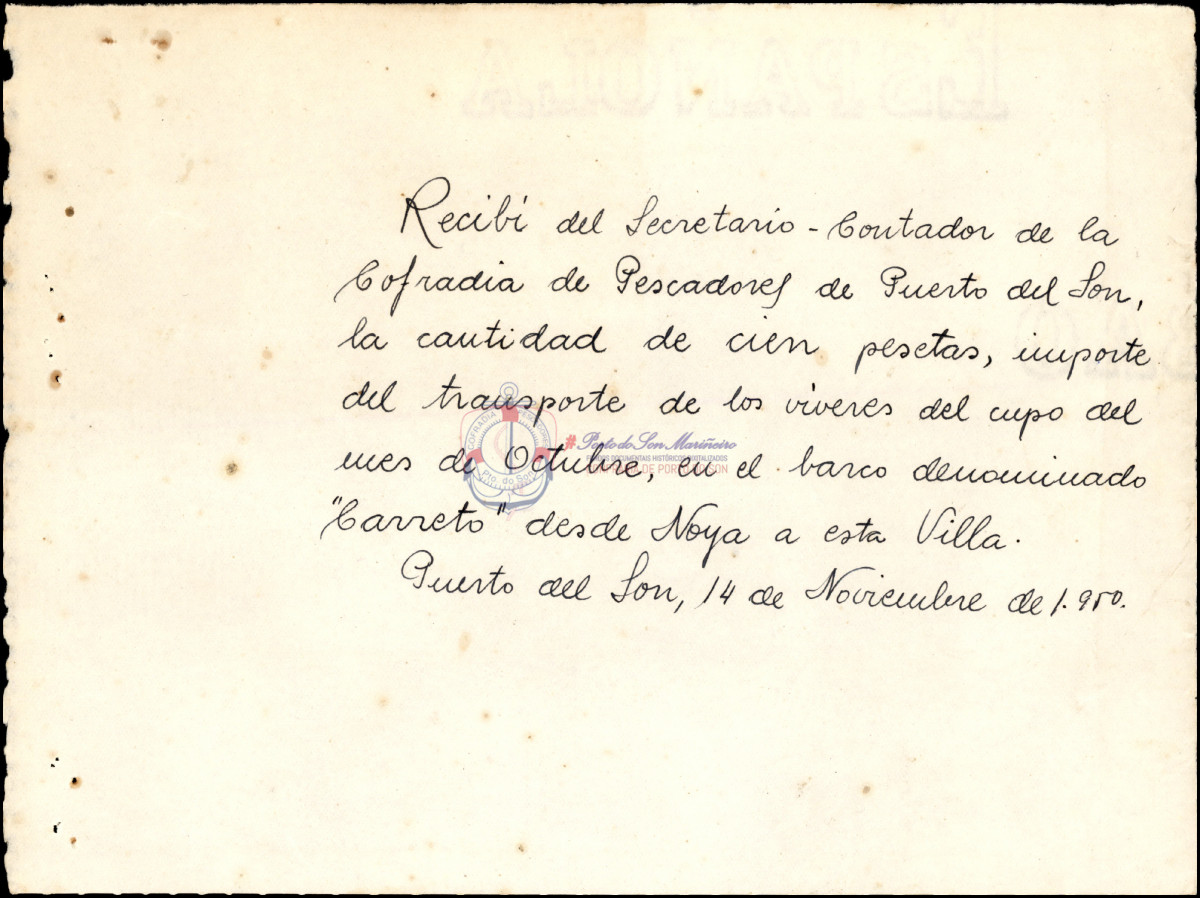 Recibí del Secretario-Contador de la
Cofradia de Pescadores de Puerto del Son,
la cantidad de cien pesetas, importe
del transporte de los viveres del cupo del
mes de Octubre, en el barco denominado
"Carreto" desde Noya a esta Villa.
Puerto del Son, 14 de Noviembre de 1.950.
COFRADIA
Pto. do Son
#Porto do Son Mariñeiro
FONDOS DOCUMENTAIS HISTÓRICOS DIXITALIZADOS
DE PORTO DO SON